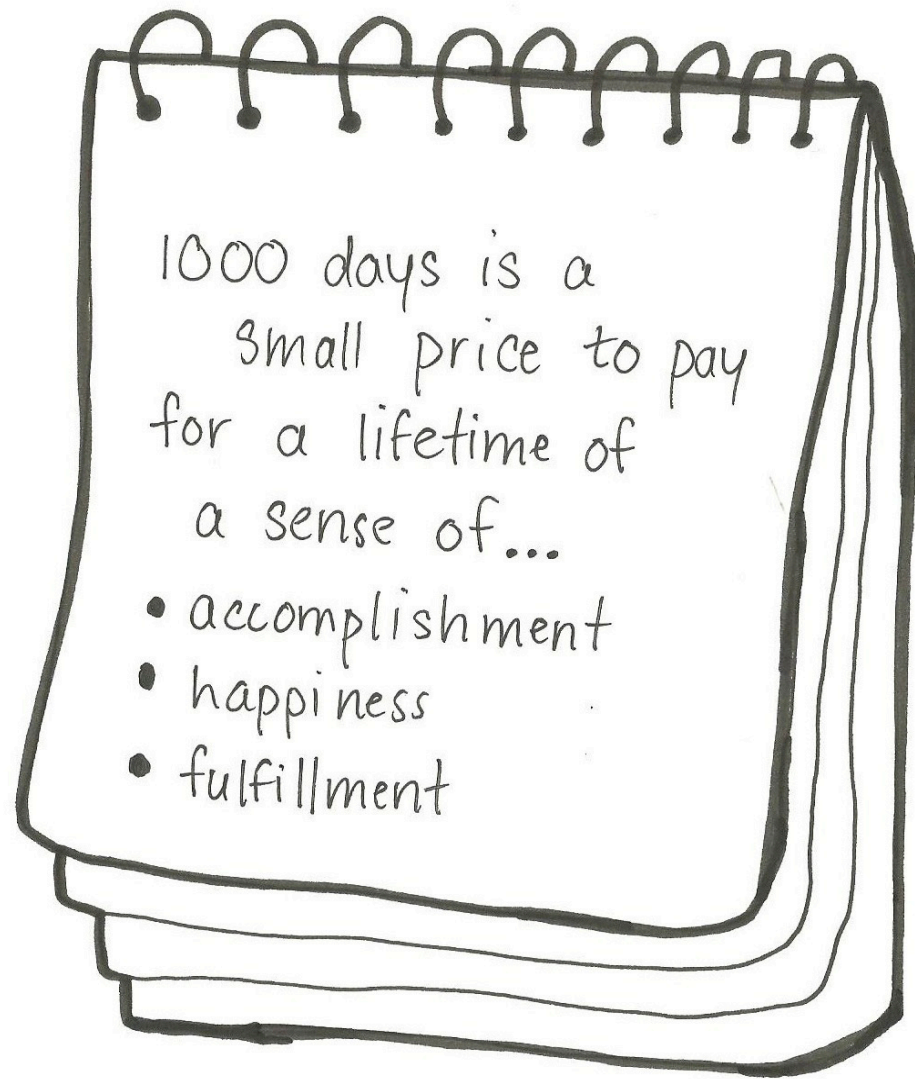 1000 days is a
small price to pay
for a lifetime of
a sense of...
• accomplishment
• happiness
• fulfillment